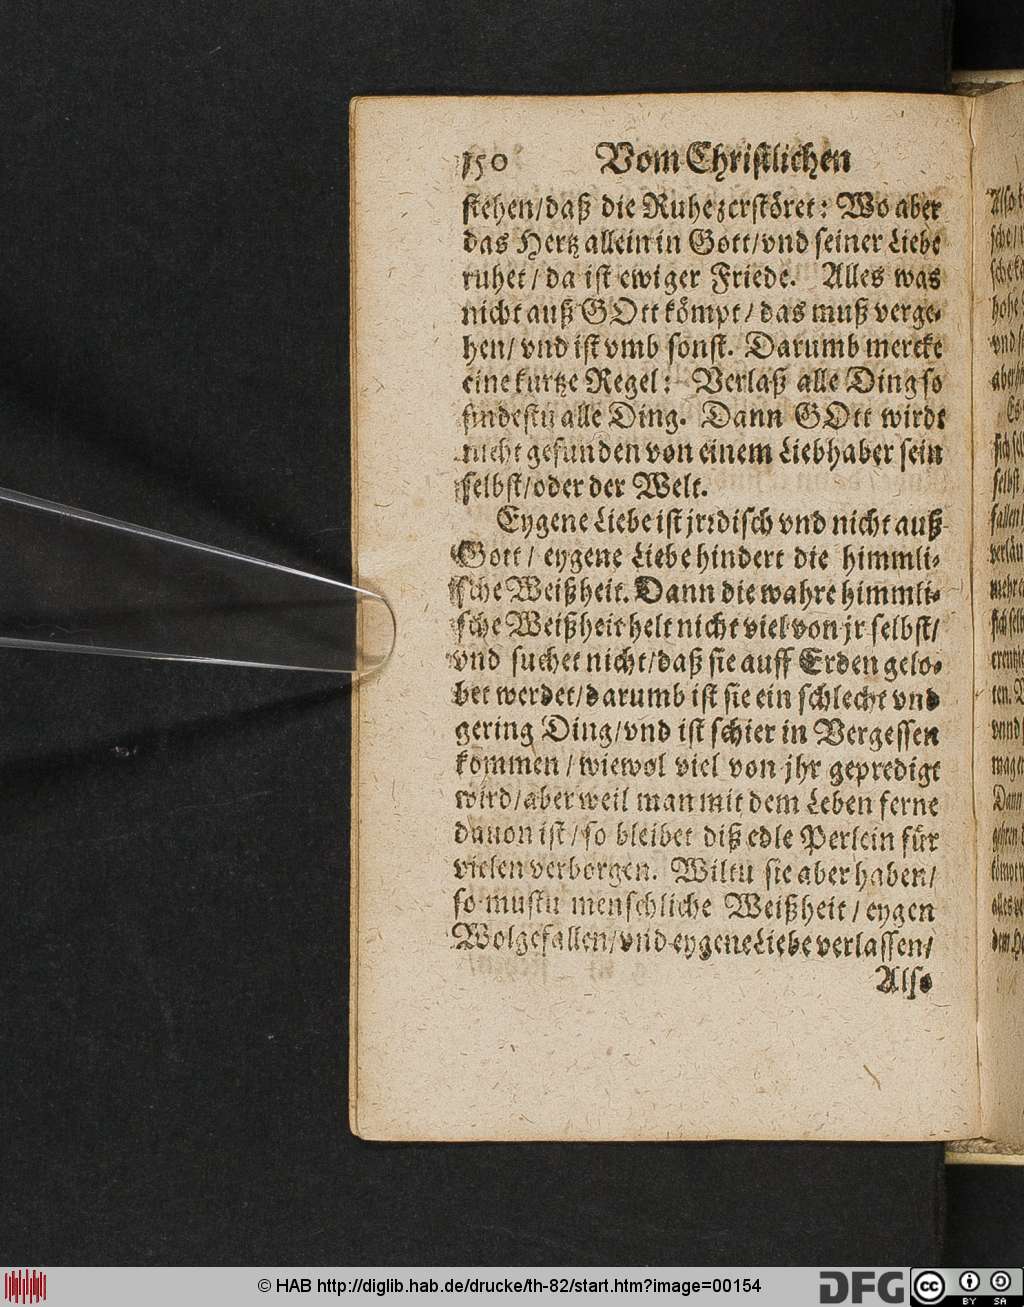 150 Vom Christlichen
stehen/daß die Ruhe zerstöret: Wo aber
das Hertz allein in Gott/vnd seiner Liebe
ruhet/ da ist ewiger Friede. Alles was
nicht auß GOtt kömpt/ das muß verge-
hen/ vnd ist vmb sonst. Darumb mercke
eine kurtze Regel: Verlaß alle Ding so
findestu alle Ding. Dann GOtt wirdt
nicht gefunden von einem Liebhaber sein
selbst/oder der Welt.
Eygene Liebe ist jrrdisch vnd nicht auß
Gott/ eygene Liebe hindert die himmli-
sche Weißheit. Dann die wahre himmli-
sche Weißheit helt nicht viel von jr selbst/
vnd suchet nicht/daß sie auff Erden gelo-
bet werdet/darumb ist sie ein schlecht vnd
gering Ding/vnd ist schier in Vergessen
kommen/ wiewol viel von jhr gepredigt
wird/aber weil man mit dem Leben ferne
dauon ist/ so bleibet diß edle Perlein für
vielen verborgen. Wiltu sie aber haben/
so mustu menschliche Weißheit/ eygen
Wolgefallen/vnd eygene Liebe verlassen/
Also
© HAB http://diglib.hab.de/drucke/th-82/start.htm?image=00154
DFG
cc BY SA